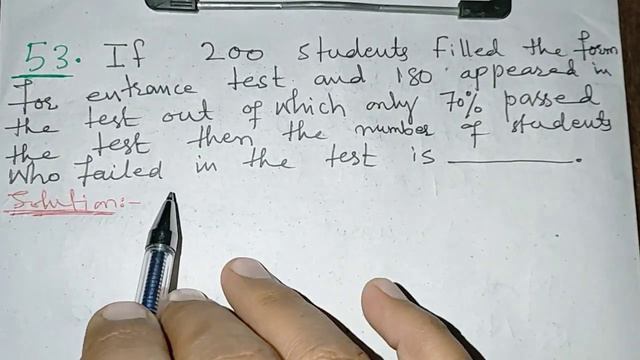 53. If 200 students filled the form
for entrance test and 180 appeared in
the test out of which only 70% passed
the test then the number of students
who failed in the test is ________.
Solution:-